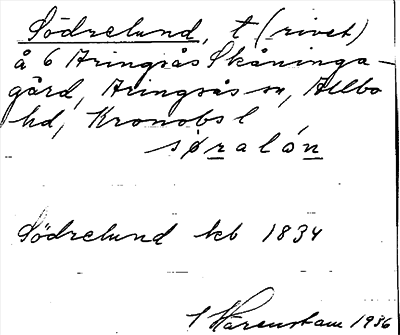 Södrelund, t (rivet)
å 6 Aringsås Skåninga-
gård, Aringsås sn, Allbo
hd, Kronobs l
sø̀ralón
Södrelund kb 1834
Harenstam 1936